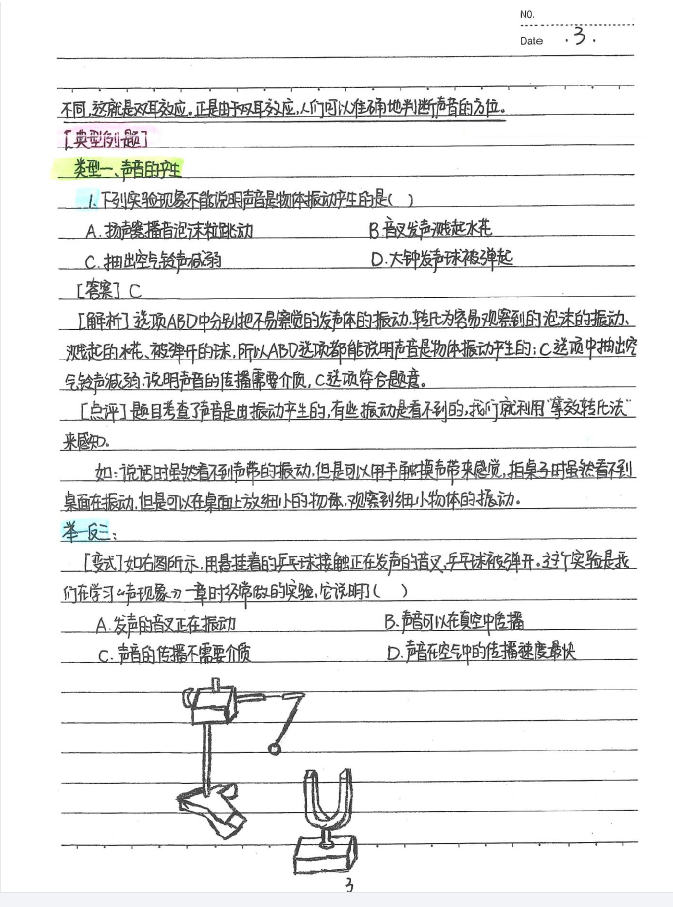 NO.
Date .3.
不同,这就是双耳效应。正是由于双耳效应,人们可以准确地判断声音的方位。
[典型例题]
类型一、声音的产生
1.下列实验现象不能说明声音是物体振动产生的是( )
A.扬声器播音泡沫粒跳动 B.音叉发声溅起水花
C.抽出空气铃声减弱 D.大钟发声球被弹起
[答案]C
[解析]选项ABD中分别把不易察觉的发声体的振动,转化为容易观察到的泡沫的振动、
溅起的水花、被弹开的球,所以ABD选项都能说明声音是物体振动产生的;C选项中抽出空
气铃声减弱,说明声音的传播需要介质,C选项符合题意。
[点评]题目考查了声音是由振动产生的,有些振动是看不到的,我们就利用“等效转化法”
来感知。
如:说话时虽然看不到声带的振动,但是可以用手触摸声带来感觉,拍桌子时虽然看不到
桌面在振动,但是可以在桌面上放细小的物体,观察到细小物体的振动。
举一反三:
[变式]如右图所示,用悬挂着的乒乓球接触正在发声的音叉,乒乓球被弹开。这个实验是我
们在学习“声现象”一章时经常做的实验,它说明了( )
A.发声的音叉正在振动 B.声音可以在真空中传播
C.声音的传播不需要介质 D.声音在空气中的传播速度最快
3